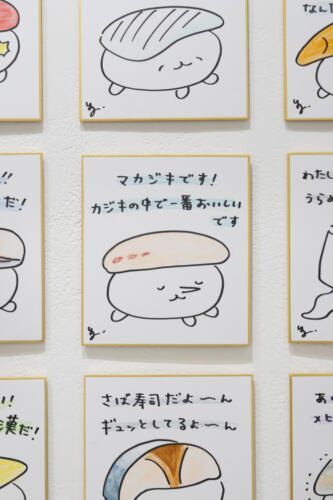 なんた
!!
だ!
マカジキです!
カジキの中で一番おいしい
です
わたし
うらめ
い!
漢だ!
さば寿司だよ〜ん
ギュッとしてるよ〜ん
あの
メヒ